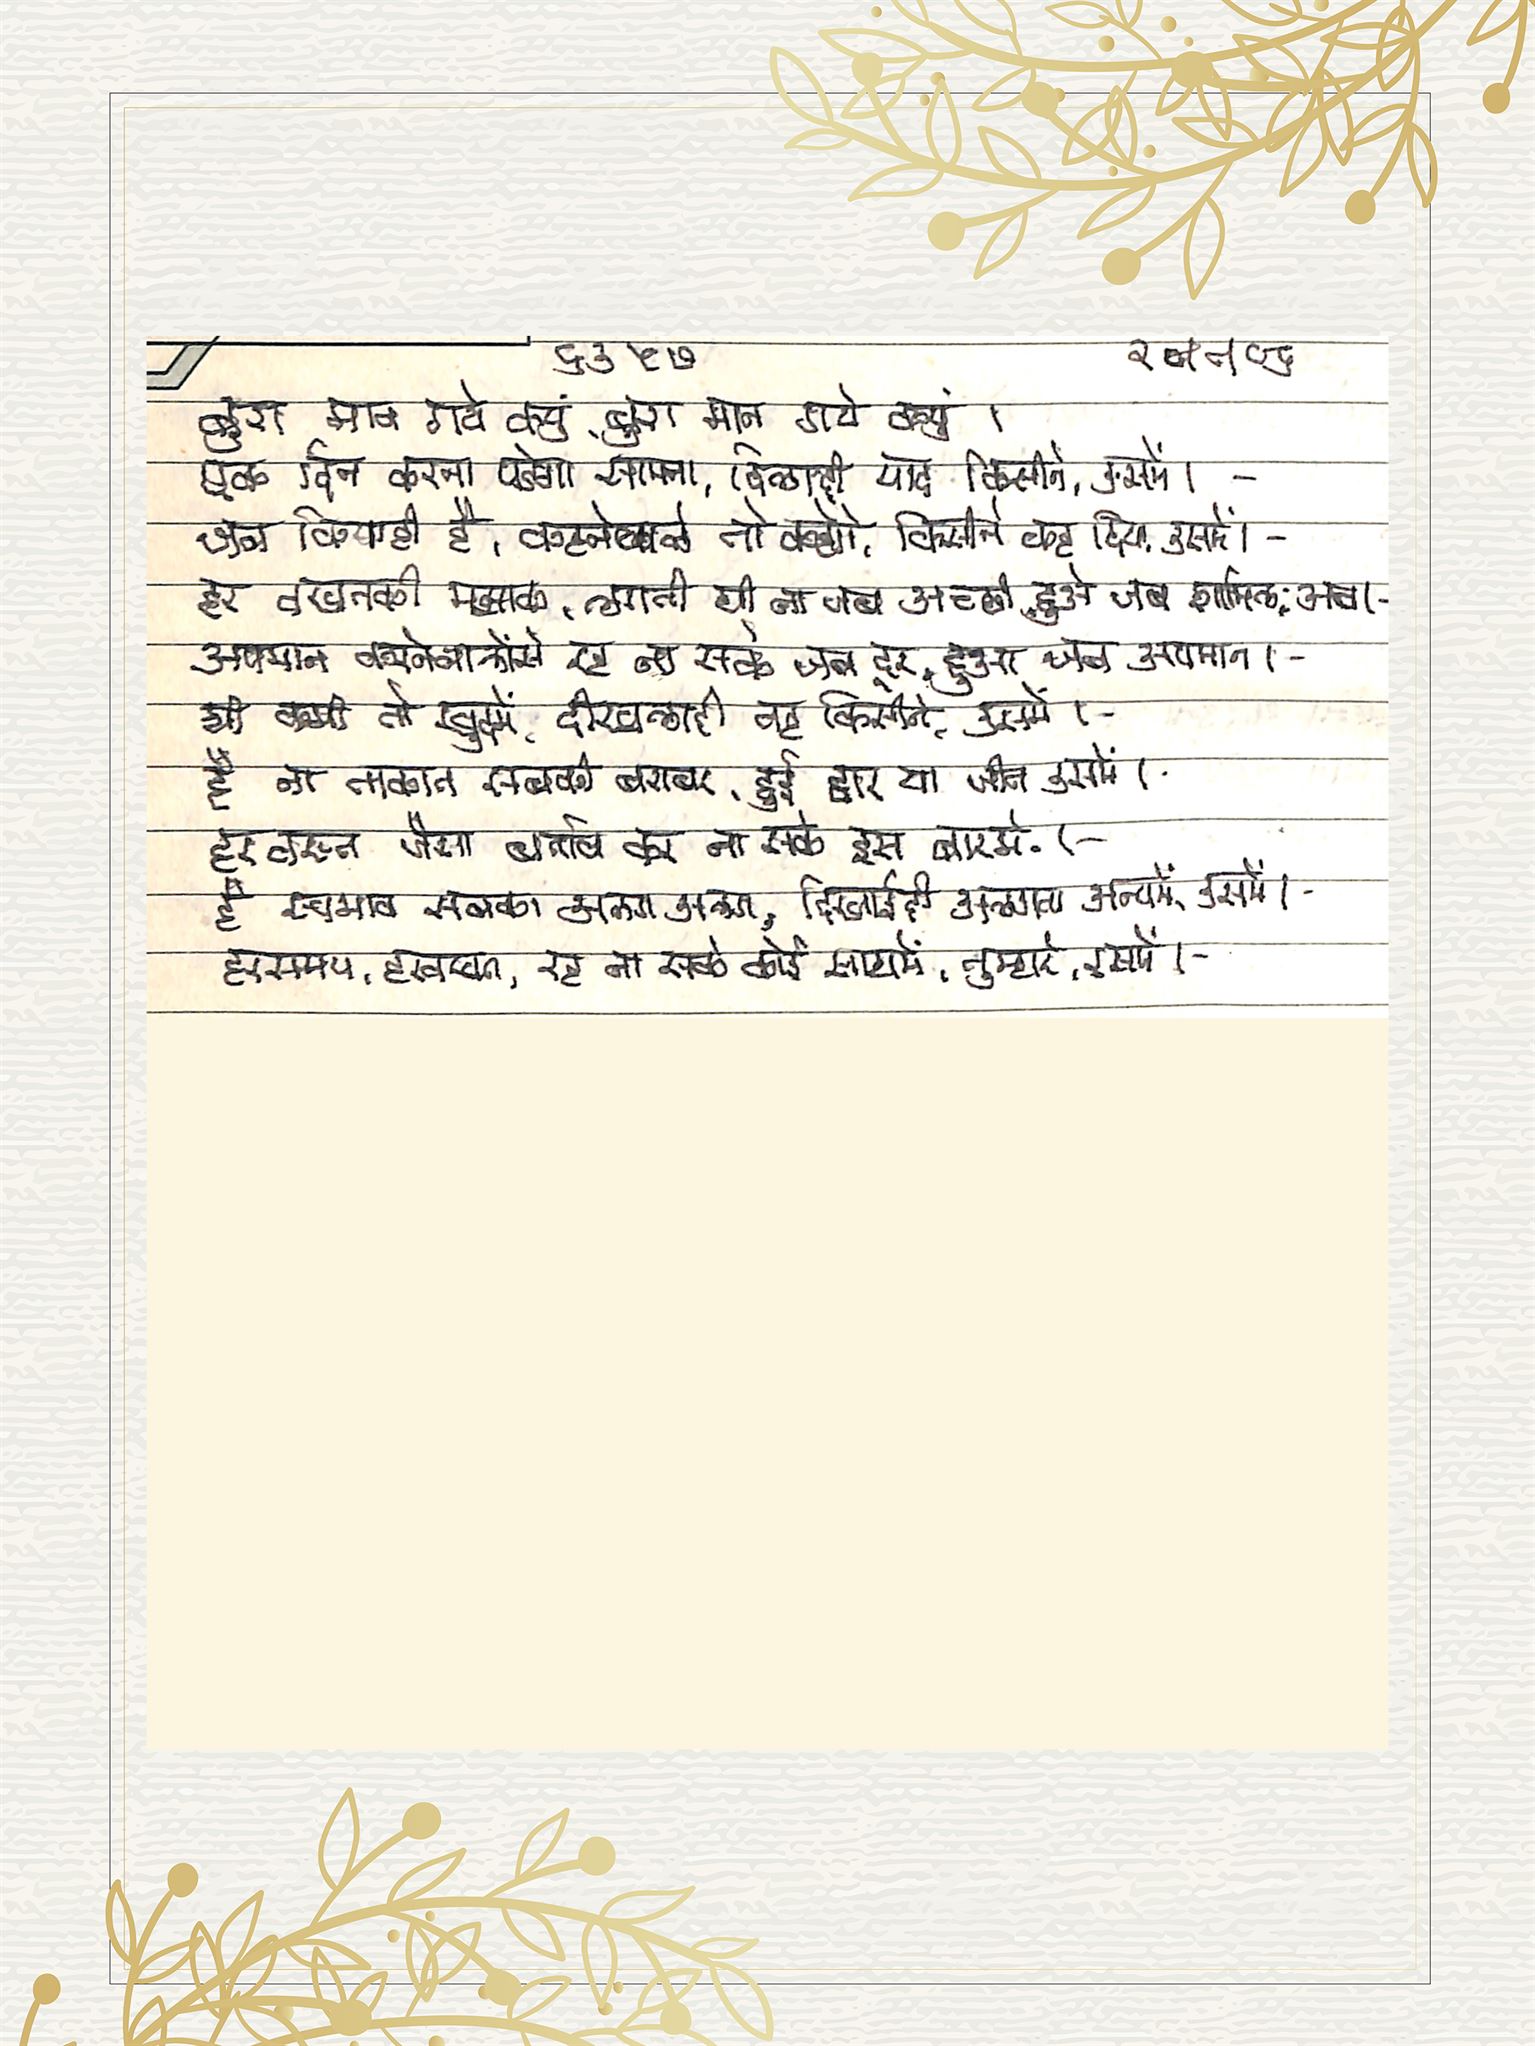 ६३५७ रजनेन्द्र
बुरा मान गये क्युं, बुरा मान गये क्युं ।
एक दिन करना पडेगा सामना, दिलादी याद किसीने, उसमें । -
जब कियाही है, कहनेवाले तो कहेंगे, किसीने कह दिया, उसमें । -
हर वखतकी मज़ाक, लगती थी ना जब अच्छी, हुओ जब शामिल, अब । -
अपमान करनेवालोंसे रह ना सके जब दूर, हुआ जब अपमान । -
थी कमी तो खुदमें, दीखलादी वह किसीने, उसमें । -
है ना ताकात सबकी बराबर, हुई हार या जीत उसमें । -
हरवख्त जैसा बर्ताव कर ना सके इस बारमें. । -
है स्वभाव सबका अलग अलग, दिखाई दी अलगता अन्यमें, उसमें । -
हरसमय, हरवख्त, रह ना सके कोई साथमें, तुम्हारे, इसमें । -